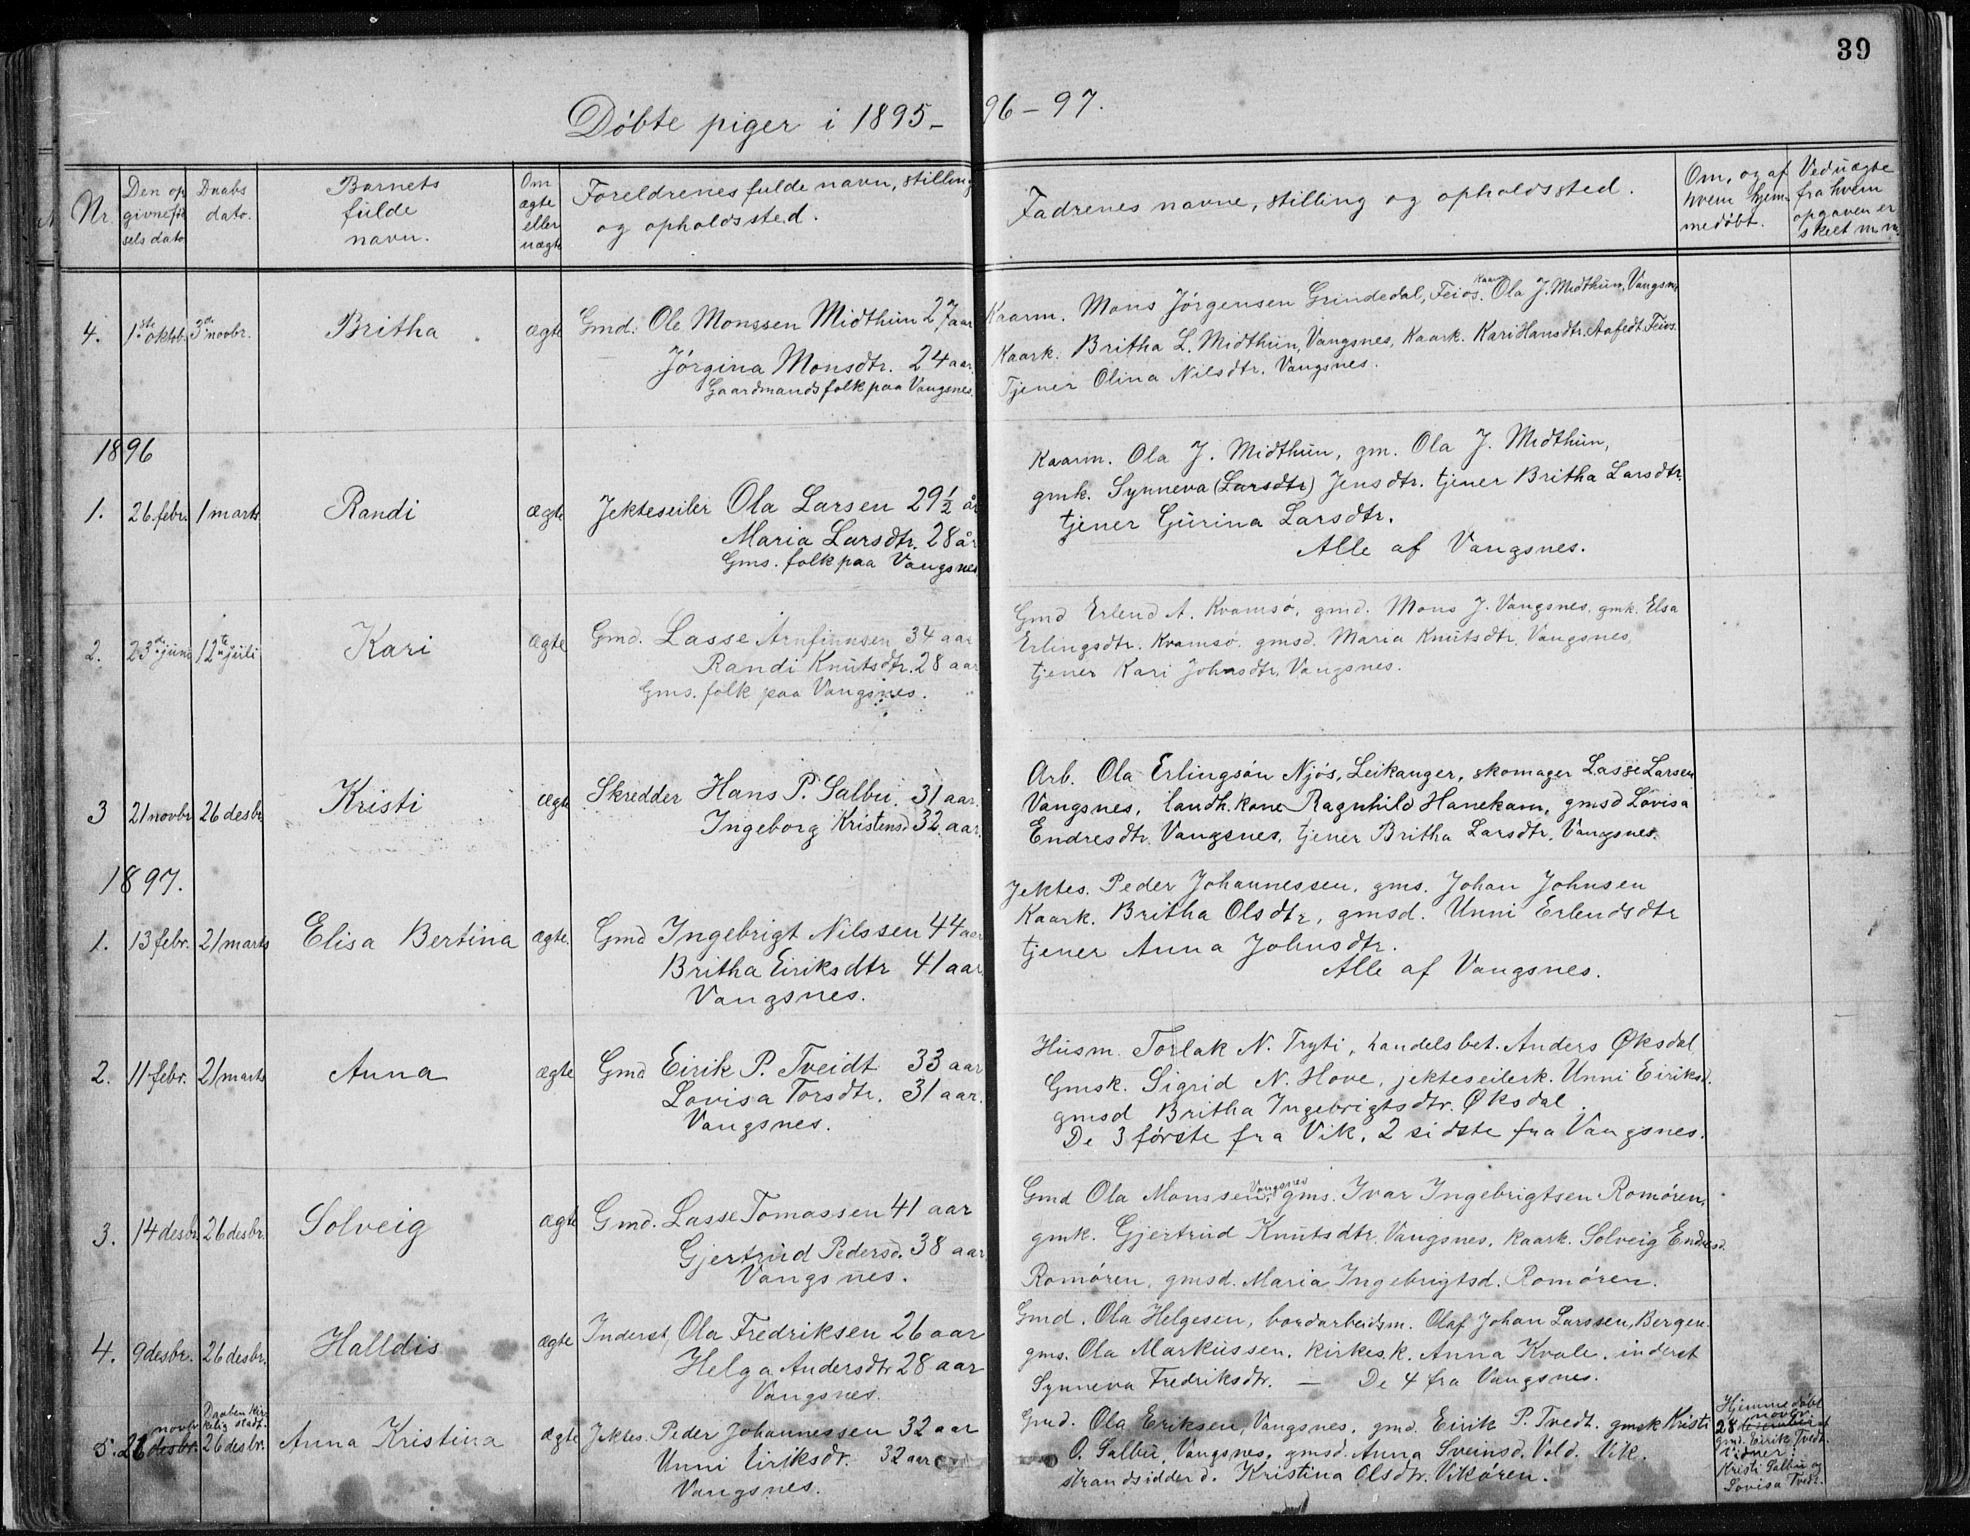 39
Döbte piger i 1895–96–97.
Nr. | Den opgivne födselsdato | Daabsdato. | Barnets fulde navn. | Om ægte eller uægte | Foreldrenes fulde navn, stilling og opholdssted. | Fadrenes navne, stilling og opholdssted. | Om, og af hvem hjemmedöbt. | Ved uægte fra hvem opgaven er skeet m m.
4. 1ste oktob. 3de novbr. Britha ægte
Gmd. Ole Monssen Midthun 27 aar
Jörgina Monsdtr. 24 aar.
Gaardmandsfolk paa Vangsnes.
Kaarm. Mons Jörgensen Grindedal, Feios. Kaarm. Ola J. Midthun, Vangsn.
Kaark. Britha L. Midthun, Vangsnes, Kaark. Kari Hansdtr. Aafedt, Feios.
Tjener Olina Nilsdtr. Vangsnes.
1896
1. 26. febr. 1 marts Randi ægte
Jekteseiler Ola Larsen 29 1/2 år
Maria Larsdtr. 28 år
Gms. folk paa Vangsnes
Kaarm. Ola J. Midthun, gm. Ola J. Midthun,
gmk. Synneva (Larsdtr) Jensdtr. tjener Britha Larsdtr.
tjener Gurina Larsdtr.
Alle af Vangsnes.
2. 23de juni 12te juli Kari ægte
Gmd. Lasse Arnfinnsen 34 aar
Randi Knutsdtr. 28 aar
Gms. folk paa Vangsnes.
Gmd Erlend A. Kvamsö, gmd. Mons J. Vangsnes. gmk. Elsa
Erlingsdtr. Kvamsö. gmsd. Maria Knutsdtr. Vangsnes
tjener Kari Johnsdtr, Vangsnes.
3 21 novbr 26 desbr Kristi ægte
Skredder Hans P. Salbu. 31 aar.
Ingeborg Kristensd 32 aar.
Arb. Ola Erlingsön Njös, Leikanger, skomager Lasse Larsen
Vangsnes, landh. kone Ragnhild Hanekam, gmsd Lovisa
Endresdtr. Vangsnes, tjener Britha Larsdtr. Vangsnes.
1897.
1. 13 febr. 21 marts Elisa Bertina ægte.
Gmd Ingebrigt Nilssen 44 aar
Britha Eiriksdtr 41 aar
Vangsnes.
Jektes. Peder Johannessen, gms. Johan Johnsen
Kaark. Britha Olsdtr, gmsd. Unni Erlendsdtr
tjener Anna Johnsdtr.
Alle af Vangsnes.
2. 11 febr. 21 marts Anna ægte
Gmd Eirik P. Tveidt 33 aar
Lovisa Torsdtr. 31 aar.
Vangsnes.
Husm. Torlak N. Tryti, handelsbet. Anders Øksdal
Gmsk. Sigrid N. Hove, jekteseilerk. Unni Eiriksd.
gmsd Britha Ingebrigtsdtr. Øksdal.
De 3 förste fra Vik, 2 sidste fra Vangsnes.
3. 14 desbr. 26 desbr. Solveig ægte
Gmd. Lasse Tomassen 41 aar
Gjertrud Pedersd. 38 aar
Vangsnes.
Gmd Ola Monssen, Vangsnes gms. Ivar Ingebrigtsen Romören,
gmk. Gjertrud Knutsdtr. Vangsnes, kaark. Solveig Endresd.
Romören, gmsd. Maria Ingebrigtsd. Romören.
4. 9 desbr. 26 desbr. Halldis ægte
Inderst, Ola Fredriksen 26 aar
Helga Andersdtr 28 aar
Vangsnes.
Gmd. Ola Helgesen, bordarbeidsm. Olaf Johan Larssen, Bergen.
gms. Ola Markussen. Kirkes.k. Anna Kvale, inderst
Synneva Fredriksdtr. — De 4 fra Vangsnes.
5. novbr desbr. Daaben kirkelig stadf. 26 desbr. Anna Kristina ægte
Jektes. Peder Johannessen 32 aar
Unni Eiriksdr. 32 aar
Vangsnes.
Gmd. Ola Eriksen, Vangsnes, gmd. Eirik P. Tvedt. gmsk Kristi
O. Salbu, Vangsnes, gmsd. Anna Sveinsd. Vold. Vik.
strandsidderd. Kristina Olsdtr. Vikören.
Hjemmedöbt
28 novbr
Gmd. Eirik Tvedt.
vidner:
Kristi Salbu og
Lovisa Tvedt.